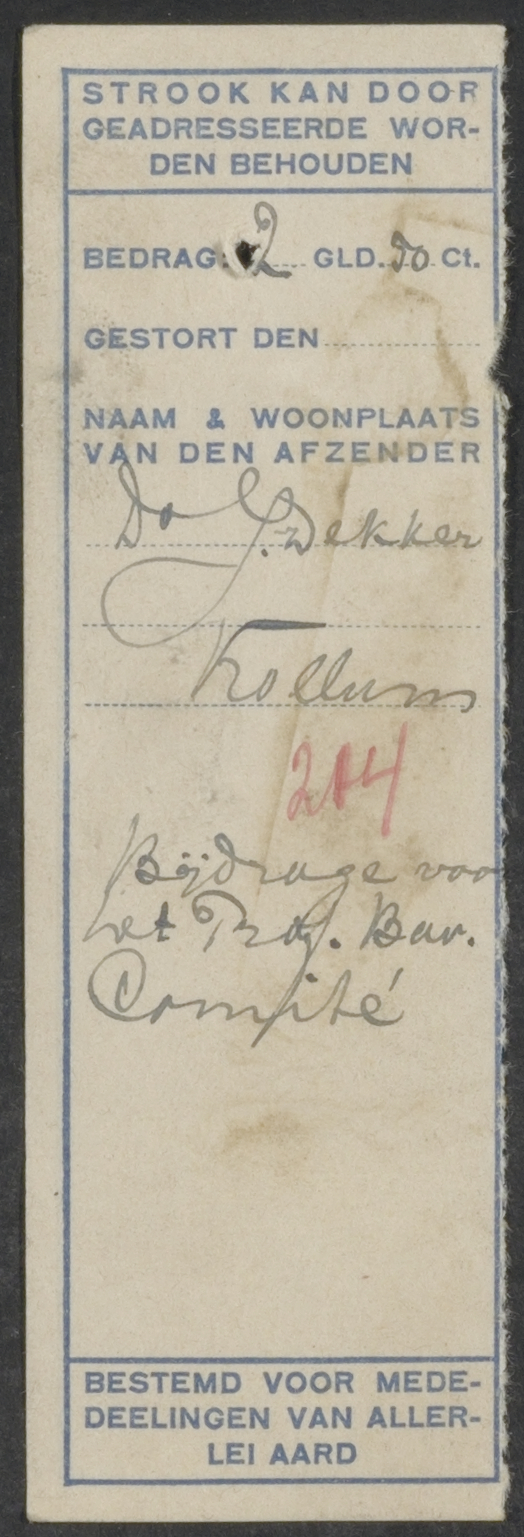 STROOK KAN DOOR
GEADRESSEERDE WOR-
DEN BEHOUDEN
BEDRAG: 2 GLD. 50 Ct.
GESTORT DEN
NAAM & WOONPLAATS
VAN DEN AFZENDER
Ds J. Dekker
Kollum
214
Bijdrage voor
het Prof. Bav.
Comité
BESTEMD VOOR MEDE-
DEELINGEN VAN ALLER-
LEI AARD